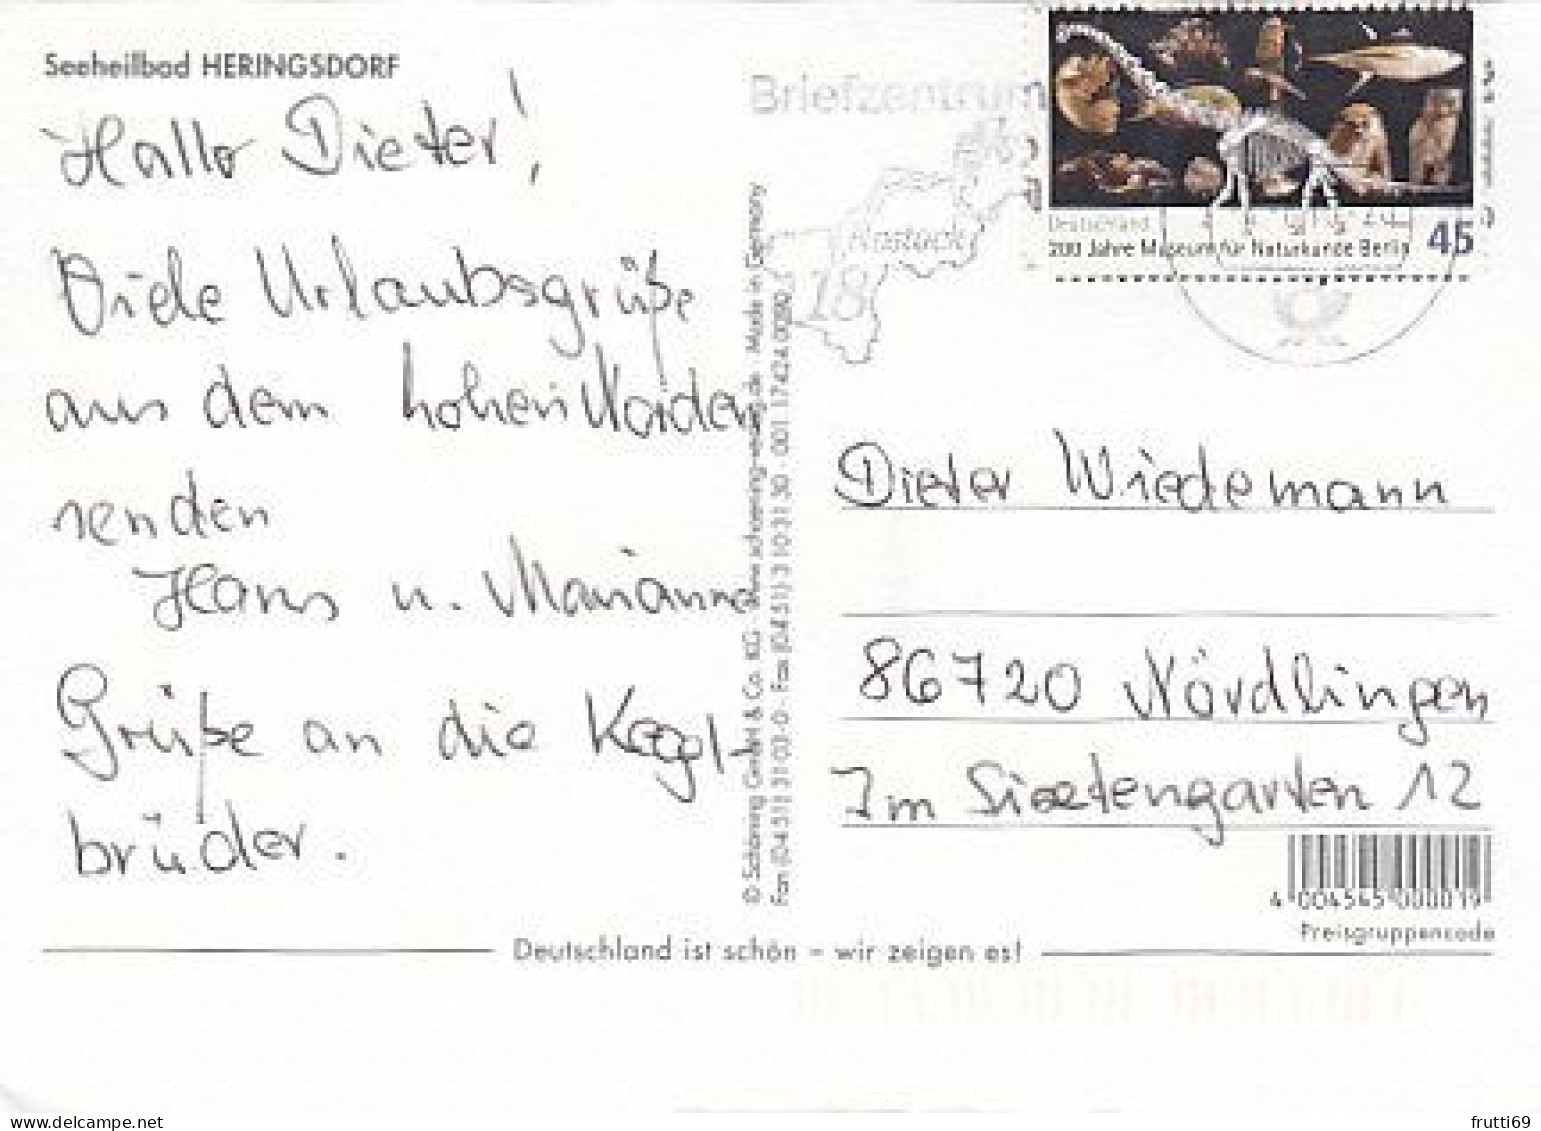 Seeheilbad HERINGSDORF
Hallo Dieter!
Viele Urlaubsgrüße
aus dem hohen Norden
senden
Hans u. Marianne
Grüße an die Kegl-
brüder.
© Schöning GmbH & Co. KG · www.schoening-verlag.de · Made in Germany
Fon (04 51) 3 10 3-0 · Fax (04 51) 3 10 31 30 · 001 17424 0080
Briefzentrum
Rostock
18
Deutschland
200 Jahre Museum für Naturkunde Berlin
45
Dieter Wiedemann
86720 Nördlingen
Im 12
4 004545 000019
Preisgruppencode
Deutschland ist schön – wir zeigen es!
frutti69